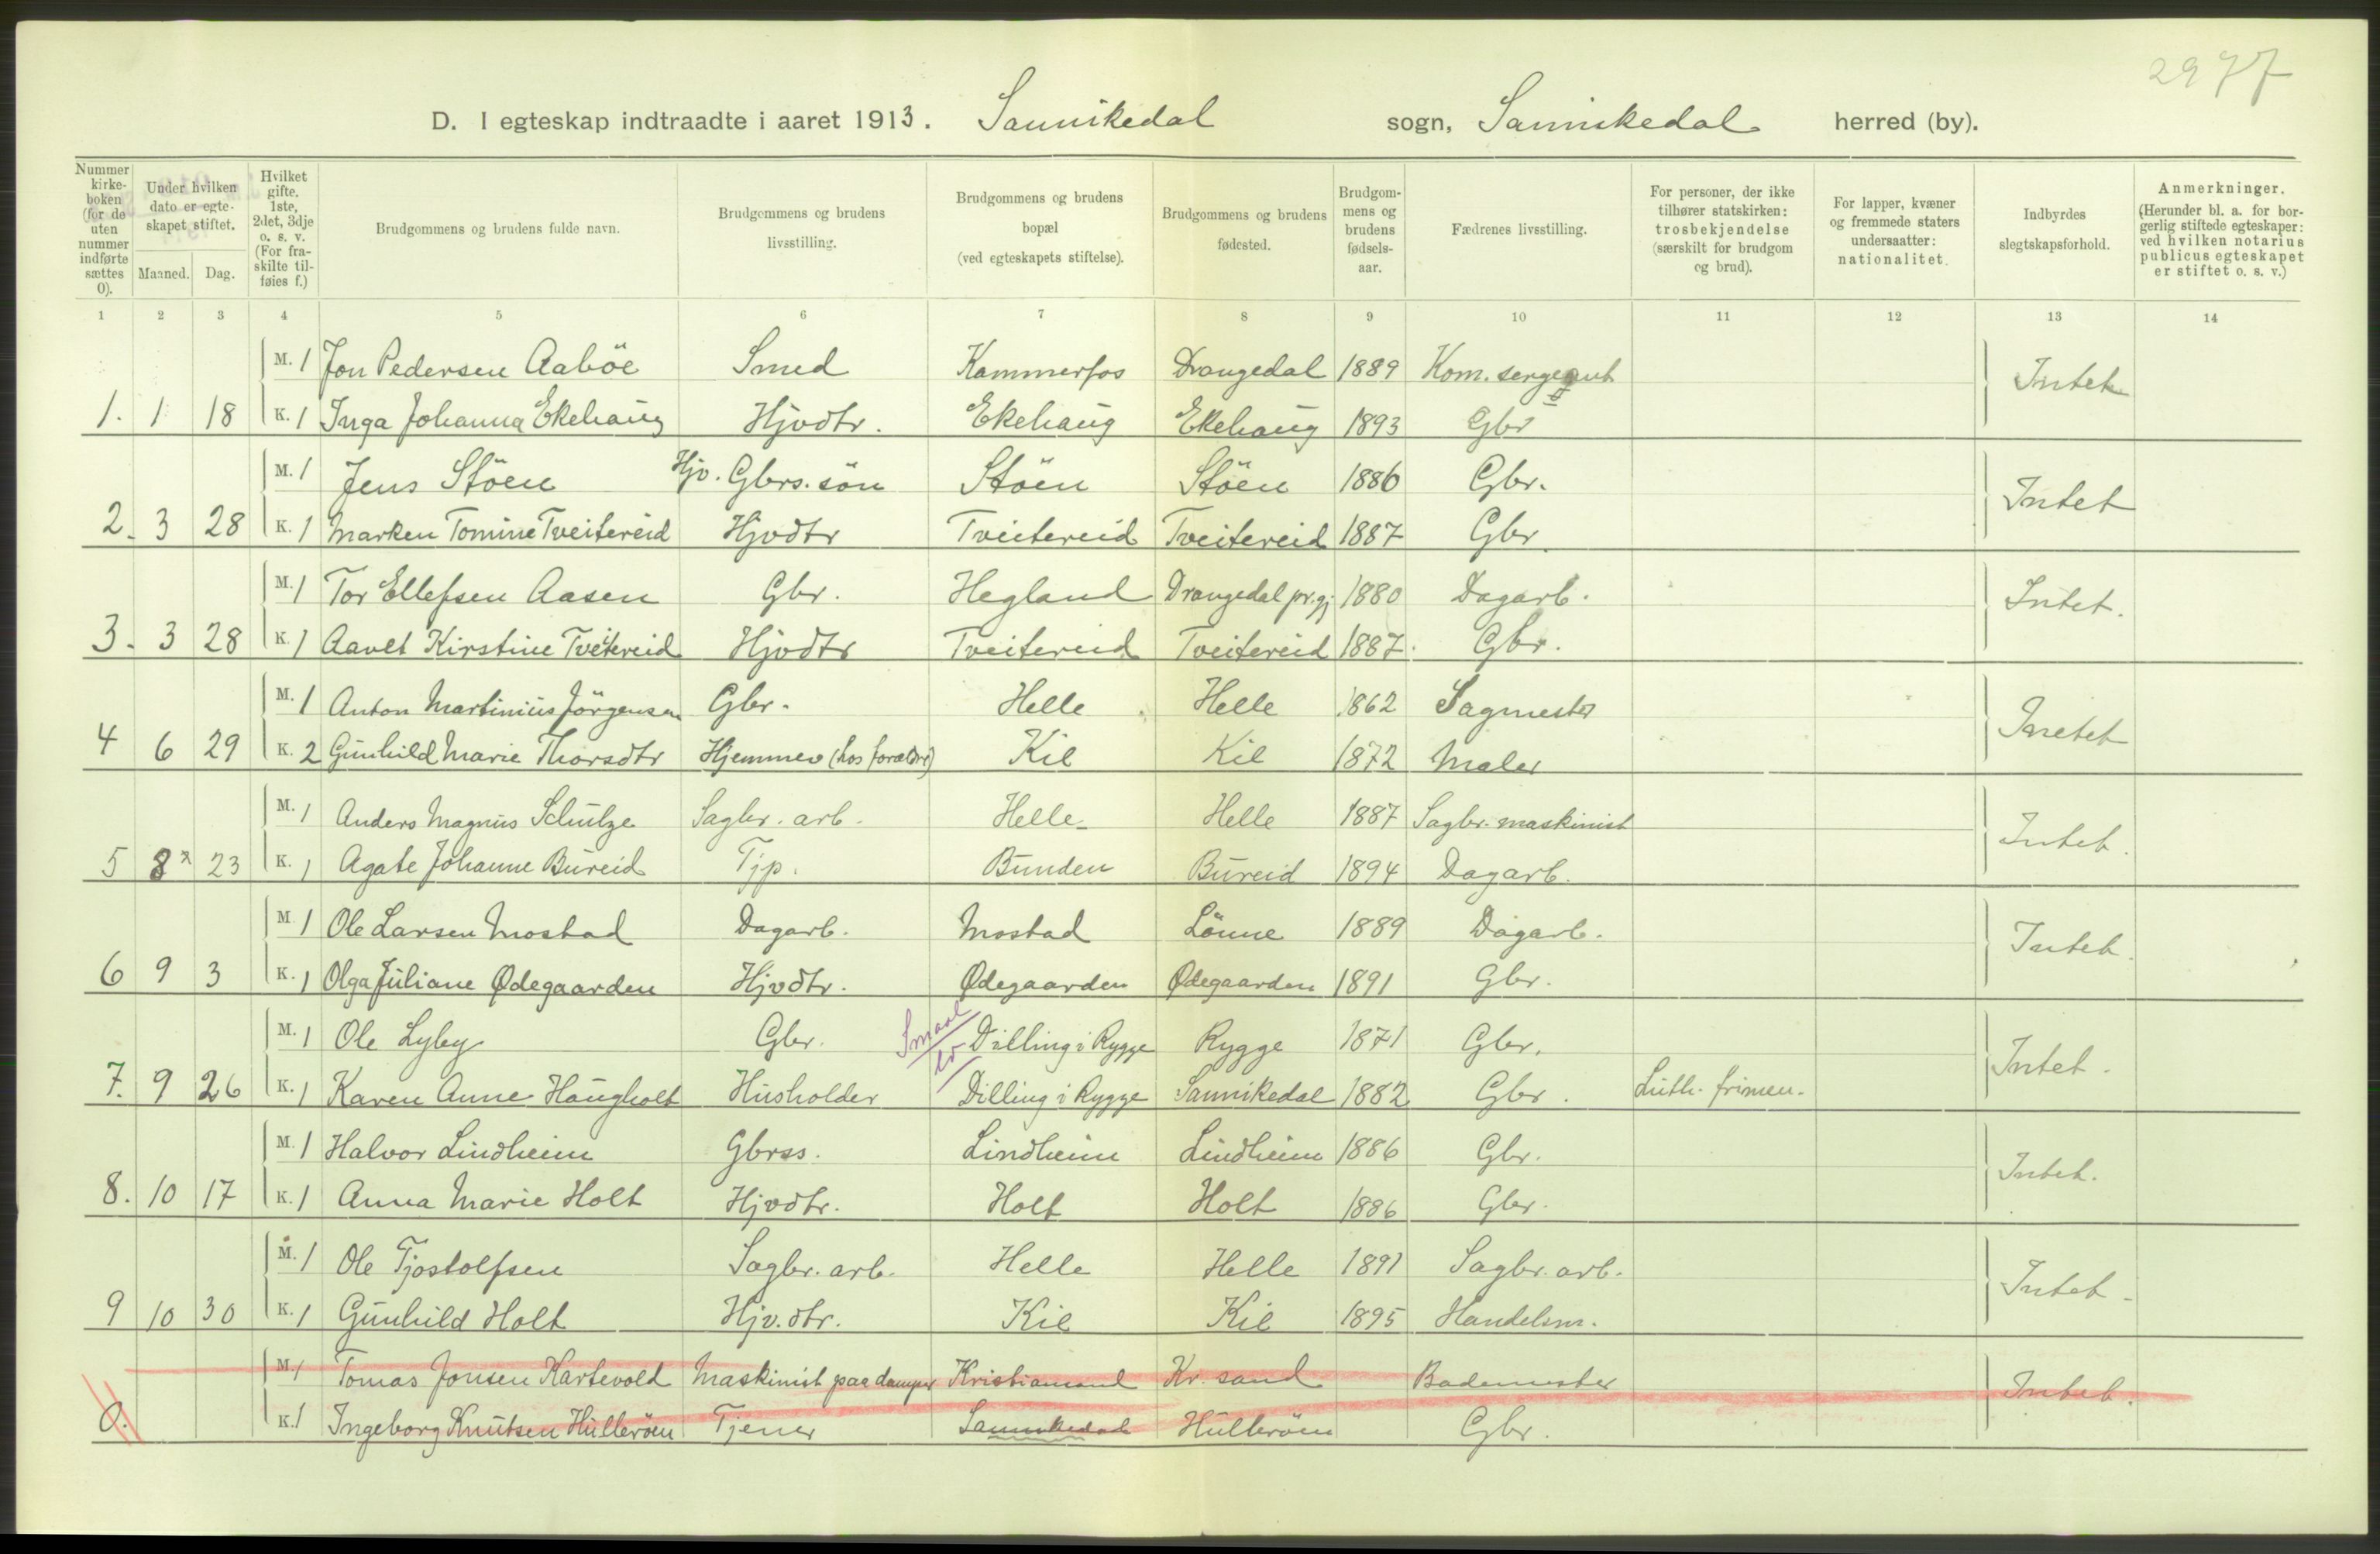 2977
D. I egteskap indtraadte i aaret 1913. Sannikedal sogn, Sannikedal herred (by).
Nummer kirke-boken (for de uten nummer indførte sættes 0).
Under hvilken dato er egte-skapet stiftet.
Maaned. Dag.
Hvilket gifte. 1ste, 2det, 3dje o. s. v. (For fra-skilte til-føies f.)
Brudgommens og brudens fulde navn.
Brudgommens og brudens livsstilling.
Brudgommens og brudens bopæl (ved egteskapets stiftelse).
Brudgommens og brudens fødested.
Brudgom-mens og brudens fødsels-aar.
Fædrenes livsstilling.
For personer, der ikke tilhører statskirken: trosbekjendelse (særskilt for brudgom og brud).
For lapper, kvæner og fremmede staters undersaatter: nationalitet.
Indbyrdes slegtskapsforhold.
Anmerkninger. (Herunder bl. a. for bor-gerlig stiftede egteskaper: ved hvilken notarius publicus egteskapet er stiftet o. s. v.)
1 2 3 4 5 6 7 8 9 10 11 12 13 14
M. 1 Jon Pedersen Aaböe Smed Kammerfos Drangedal 1889 Kom. sergeant Intet
1. 1 18 K. 1 Inga Johanna Ekehaug Hjvdtr. Ekehaug Ekehaug 1893 Gbr
M. 1 Jens Stöen Hjv. Gbrs. sön Stöen Stöen 1886 Gbr. Intet
2. 3 28 K. 1 Marken Tomine Tveitereid Hjvdtr Tveitereid Tveitereid 1887 Gbr.
M. 1 Tor Ellefsen Aasen Gbr. Hegland Drangedal pr.gj 1880 Dagarb. Intet.
3. 3 28 K. 1 Aavet Kirstine Tveitereid Hjvdtr Tveitereid Tveitereid 1887. Gbr.
M. 1 Anton Martinius Jörgensen Gbr. Helle Helle 1862 Sagmester Inetet
4 6 29 K. 2 Gunhild Marie Thorsdtr Hjemmev (hos forældre) Kil Kil 1872 Maler
M. 1 Anders Magnus Schulze Sagbr. arb. Helle Helle 1887 Sagbr. maskinist Intet.
5 8 23 K. 1 Agate Johanne Bureid Tjp. Bunden Bureid 1894 Dagarb.
M. 1 Ole Larsen Mostad Dagarb. Mostad Lönne 1889 Dagarb. Intet.
6 9 3 K. 1 Olga Juliane Ødegaarden Hjvdtr. Ødegaarden Ødegaarden 1891 Gbr.
M. 1 Ole Lyby Gbr. Smaal Dilling i Rygge Rygge 1871 Gbr. Intet.
7. 9 26 K. 1 Karen Anne Haugholt Husholder Dilling i Rygge Sannikedal 1882 Gbr. Luth. frimen.
M. 1 Halvor Lindheim Gbrss. Lindheim Lindheim 1886 Gbr. Intet.
8. 10 17 K. 1 Anna Marie Holt Hjvdtr. Holt Holt 1886 Gbr.
M. 1 Ole Tjostolfsen Sagbr. arb. Helle Helle 1891 Sagbr. arb. Intet
9 10 30 K. 1 Gunhild Holt Hjv. dtr. Kil Kil 1895 Handelsm.
M. 1 Tomas Jonsen Kartevold Maskinist paa damper Kristiansand Kr. sand Bademester Intet.
0. K. 1 Ingeborg Knutsen Hulleröen Tjener Sannikedal Hulleröen Gbr.